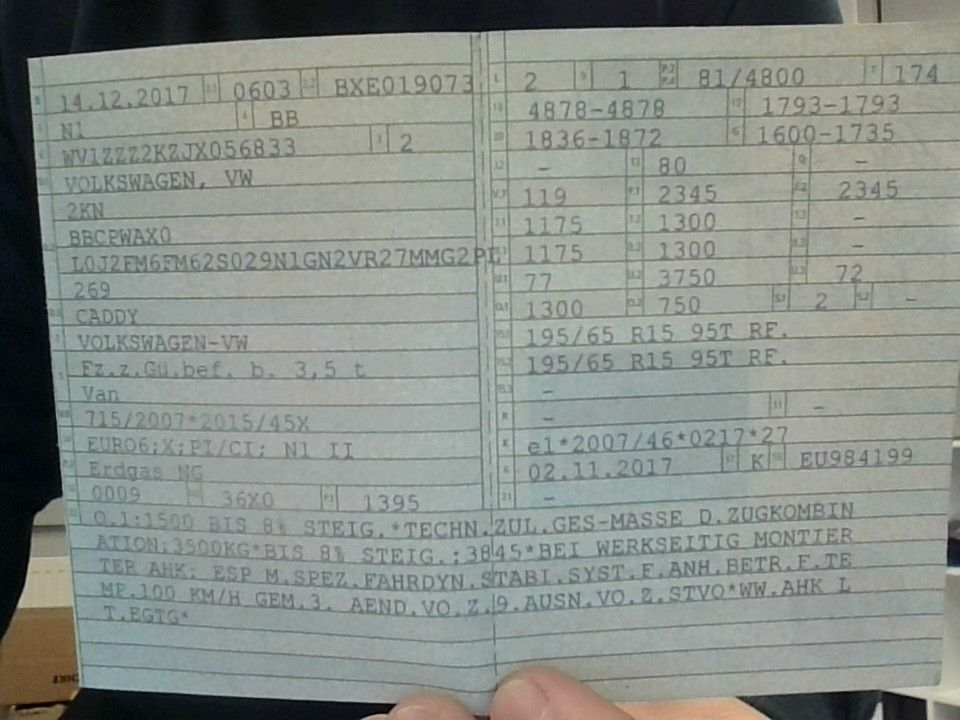 14.12.2017 0603 BXE019073
N1 BB
WV1ZZZ2KZJX056833 2
VOLKSWAGEN, VW
2KN
BBCPWAX0
L0J2FM6FM62S029N1GN2VR27MMG2PL
269
CADDY
VOLKSWAGEN-VW
Fz.z.Gü.bef. b. 3,5 t
Van
715/2007*2015/45X
EURO6;X;PI/CI; N1 II
Erdgas NG
0009 36X0 1395
L 2 9 1 P.2 P.4 81/4800 T 174
18 4878-4878 19 1793-1793
20 1836-1872 G 1600-1735
12 - 13 80 Q -
V.7 119 F.1 2345 F.2 2345
7.1 1175 7.2 1300 7.3 -
8.1 1175 8.2 1300 8.3 -
U.1 77 U.2 3750 U.3 72
O.1 1300 O.2 750 S.1 2 S.2 -
15.1 195/65 R15 95T RF.
15.2 195/65 R15 95T RF.
15.3 -
R - 11 -
K e1*2007/46*0217*27
6 02.11.2017 17 K 16 EU984199
21 -
O.1:1500 BIS 8% STEIG.*TECHN.ZUL.GES-MASSE D.ZUGKOMBIN
ATION:3500KG*BIS 8% STEIG.:3845*BEI WERKSEITIG MONTIER
TER AHK: ESP M.SPEZ.FAHRDYN.STABI.SYST.F.ANH.BETR.F.TE
MP.100 KM/H GEM.3. AEND.VO.Z.9.AUSN.VO.Z.STVO*WW.AHK L
T.EGTG*